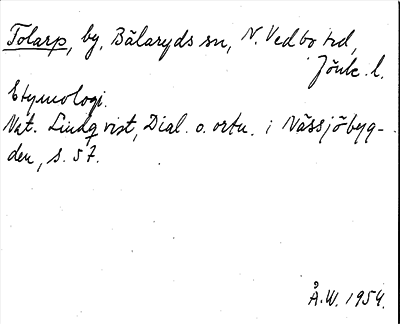 Tolarp, by, Bälaryds sn, N. Vedbo hd,
Jönk. l.
Etymologi.
Nat. Lindqvist, Dial. o. ortn. i Nässjöbyg-
den, s. 57.
Å.W. 1954.